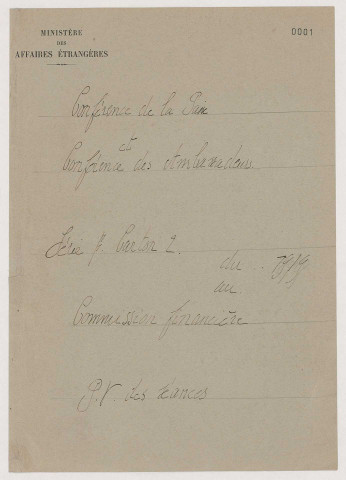 MINISTÈRE
DES
AFFAIRES ÉTRANGÈRES
0001
Conférence de la Paix
et
Conférence des Ambassadeurs
Série F. Carton 2.
du 1919
au
Commission financière
P.V. des séances